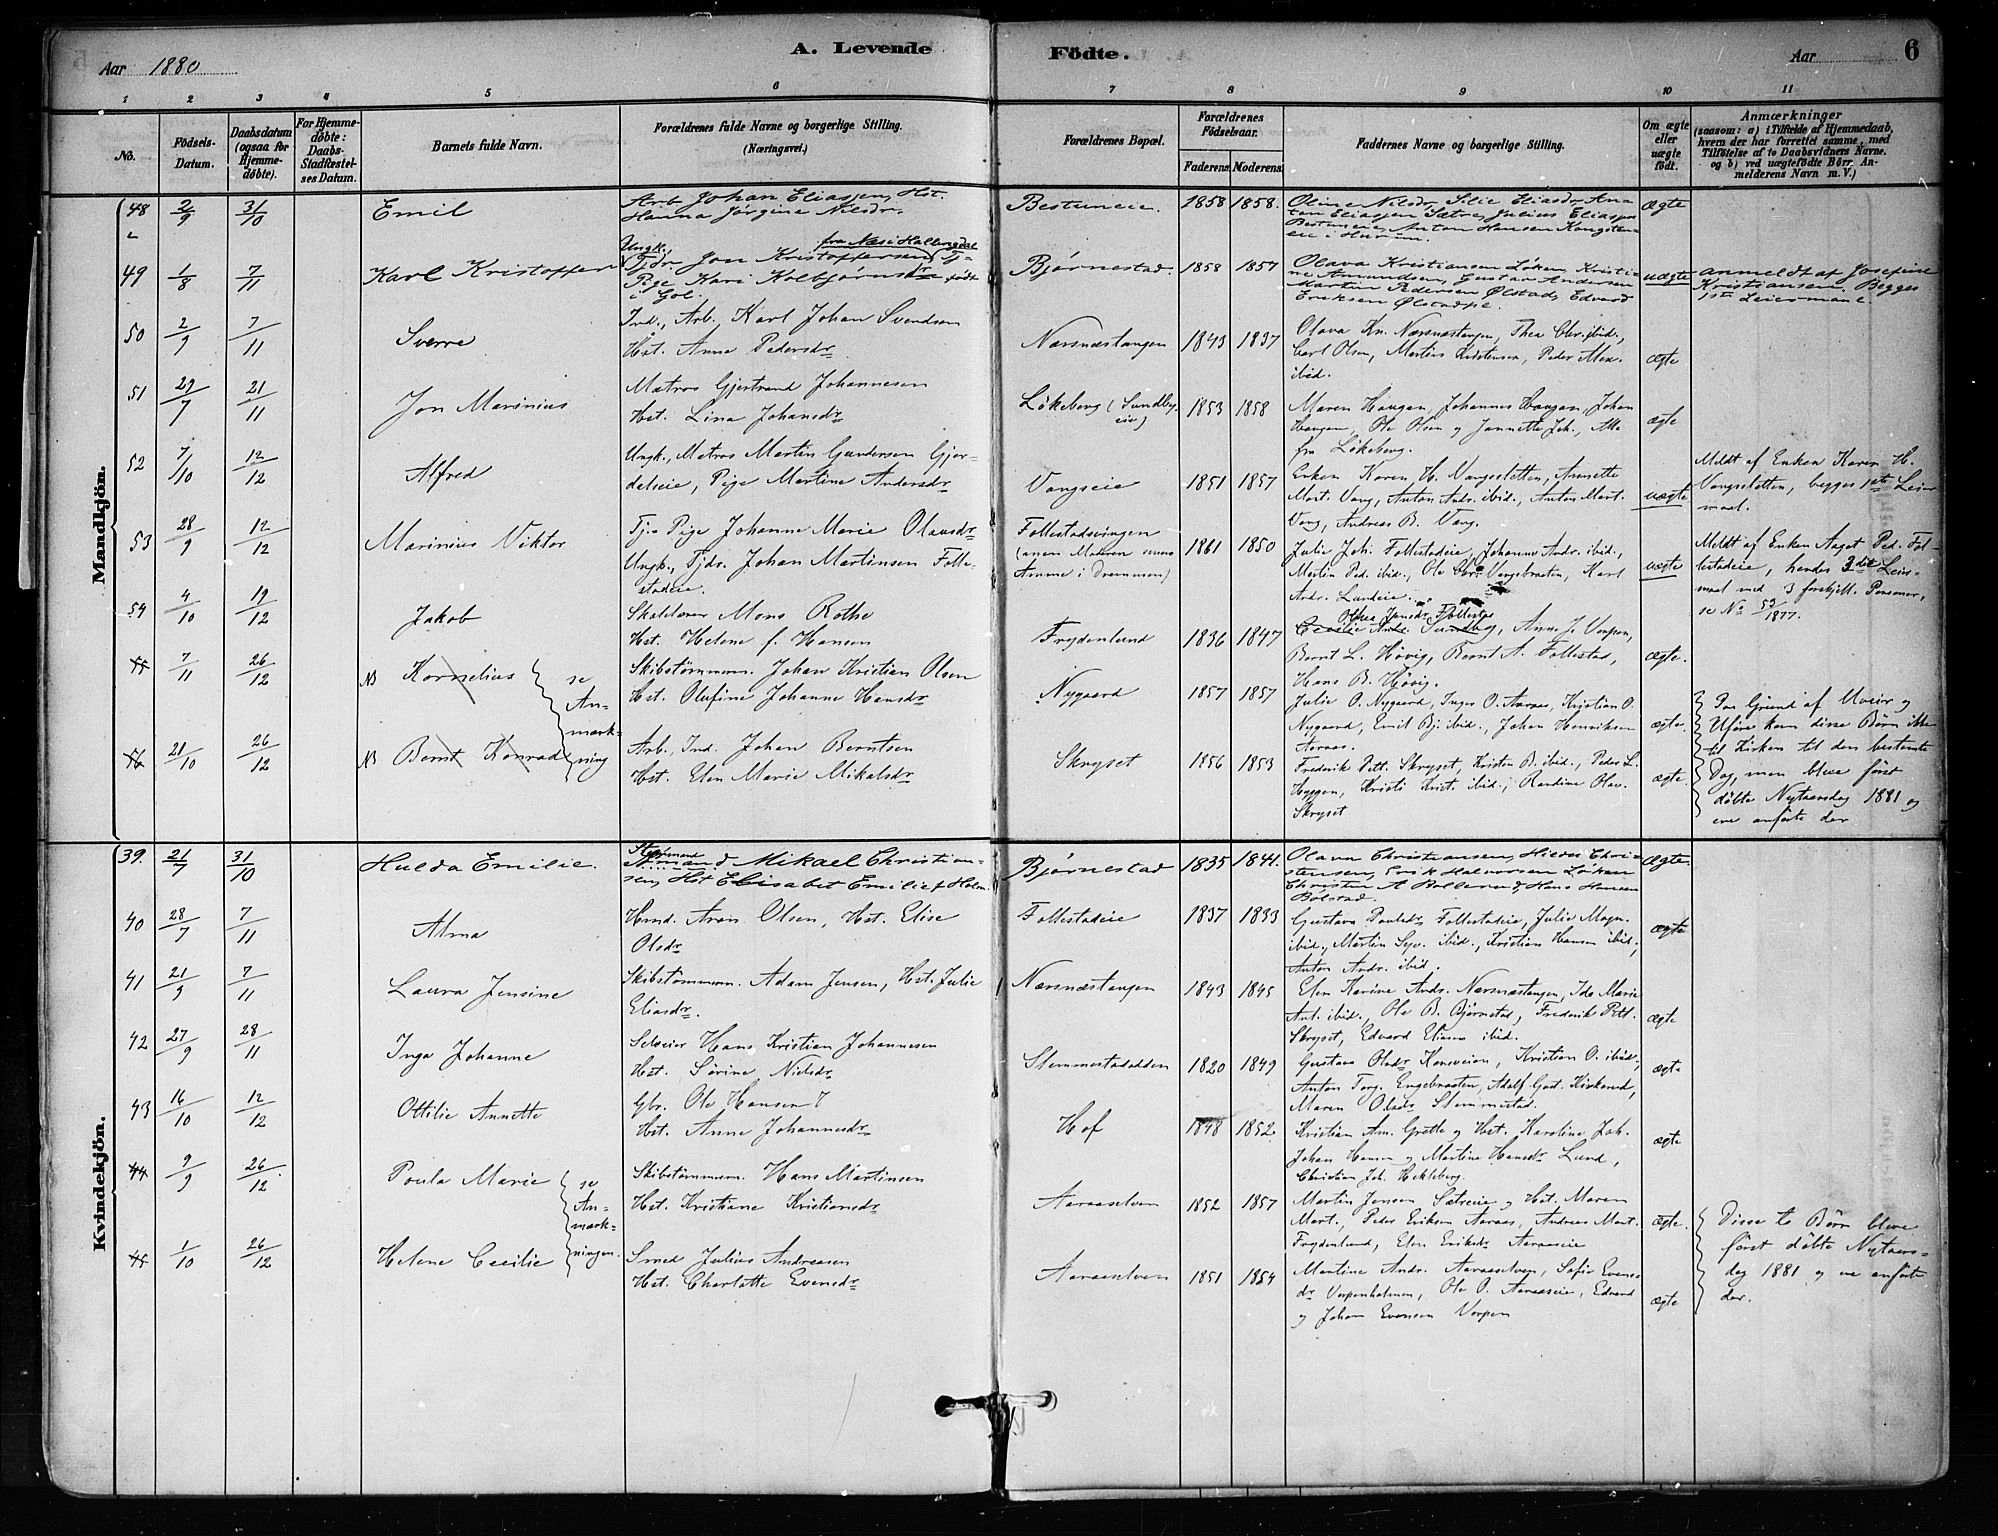 A. Levende Födte.
Aar 1880
Aar
6
1 2 3 4 5 6 7 8 9 10 11
No.
Födsels-Datum.
Daabsdatum (ogsaa for Hjemme-döbte).
For Hjemme-döbte: Daabs-Stadfæstel-ses Datum.
Barnets fulde Navn.
Forældrenes fulde Navne og borgerlige Stilling.
(Næringsvei.)
Forældrenes Bopæl.
Forældrenes Födselsaar.
Faderens. Moderens.
Faddernes Navne og borgerlige Stilling.
Om ægte eller uægte födt.
Anmærkninger
(saasom: a) i Tilfælde af Hjemmedaab,
hvem der har forrettet samme, med
Tilföielse af to Daabsvidners Navne,
og b) ved uægtefödte Börn, An-
melderens Navn m. V.)
Mandkjön.
48 2/9 31/10 Emil Arb. Johan Eliassen, Hst. Hanna Jørgine Nilsdr. Bestumeie. 1858 1858. Oline Nilsdr, Silie Eliasdr, An-
ton Eliassen Sætre, Julius Eliassen
Bestumeie, Anton Hansen Kongsten-
eie i Hurum. Ægte
49 1/8 7/11 Karl Kristoffer Ungk. Tjdr Jon Kristoffersen fra Næs i Hallingdal Tj-
Pige Kari Kolbjørnsdr født
i Gol. Bjørnestad. 1858 1857 Olava Kristiansen Løken, Kristi-
ne Amundsen, Gustav Andersen
Martin Pedersen Ølstad, Edvard
Eriksen Ølstadpe. uægte Anmeldt af Josefine
Kristiansen. Begges
1ste Leiermaal.
50 2/9 7/11 Sverre Ind., Arb. Karl Johan Svendsen
Hst. Anna Pedersdr Nærsnæstangen 1843 1837 Olava Kr. Nærsnæstangen, Thea Chr. ibid.,
Carl Olsen, Martin Kristensen, Peder Alex.
ibid. Ægte
51 29/7 21/11 Jon Marinius Matros Gjertrand Johannesen
Hst. Lina Johansdr Løkeberg (Sundby-
eie) 1853 1858 Maren Haugen, Johannes Haugen, Johan
Haugen, Ole Olsen og Jannette Joh., Alle
fra Løkeberg. ægte
52 7/10 12/12 Alfred Ungk., Matros Martin Gundersen Gjer-
delseie, Pige Martine Andersdr Vangseie 1851 1857 Enken Karen H. Vangsletten, Annette
Mart. Vang, Anton Andr. ibid., Anton Mart.
Vang, Andreas B. Vang. uægte Meldt af Enken Karen H.
Vangsletten, begges 1ste Leier-
maal.
53 28/9 12/12 Marinius Viktor Tjs. Pige Johanne Marie Olausdr
Ungk., Tjdr. Johan Martinsen Folle-
stadeie. Follestadsvingen
Amme i Drammen) 1861 1850 Julie Joh. Follestadeie, Johanne Andr. ibid.,
Martin Ped. ibid., Ole Chr. Vangebraaten, Karl
Andr. Lundeie. uægte Meldt af Enken Aaget Ped. Fol-
lestadeie, hendes 3die Leier-
maal med 3 forskjell. Personer,
se No 53/1877.
54 4/10 19/12 Jakob Skolelærer Mons Rothe
Hst. Helene f. Hansen Frydenlund 1836 1847 Othea Jensdr. Follestad
Cecilie Andr. Sundby, Anne J. Verpen,
Bernt L. Høvig, Bernt A. Follestad,
Hans B. Høvig. ægte.
55 7/11 26/12 NB Kornelius Skibstømmerm. Johan Kristian Olsen
Hst. Olufine Johanne Hansdr Nygaard 1857 1857 Julie O. Nygaard, Inger O. Aaraas, Kristian O.
Nygaard, Emil Bj. ibid., Johan Henriksen
Aaraas. ægte.
56 21/10 26/12 NB Bernt Konrad Arb., Ind. Johan Berntsen
Hst. Elen Marie Mikelsdr Skryset 1856 1853 Frederik Pett. Skryset, Kristen B. ibid., Peder L.
Hyggen, Kristi Krist. ibid., Randine Olav.
Skryset ægte.
se An-mærk-ning
Paa Grund af Uveir og
Uføre kom disse Børn ikke
til Kirken til den bestemte
Dag, men bleve først
døbte Nytaarsdag 1881 og
ere anførte der
Kvindekjön.
39. 21/7 31/10 Hulda Emilie. Strømand Mikael Christian-
sen, Hst Elisabet Emilie f. Holm. Bjørnestad 1835 1841. Olava Christiansen, Hilda Chri-
stensen, Erik Halvorsen Løken
Christen A Bollerud, Hans Hansen
Bølstad. Ægte.
40 28/7 7/11 Alma Hmd. Aron Olsen, Hst. Elise
Olsdr Follestadeie 1837 1833 Gustava Paulsdr Follestadeie, Julie Magn.
ibid., Martin Syv. ibid., Kristian Hansen ibid,
Anton Andr. ibid. ægte
41 21/9 7/11 Laura Jensine Skibstømmerm. Adam Jensen, Hst. Julie
Eliasdr. Nærsnæstangen 1843 1845 Elen Karine Andr. Nærsnæstangen, Ida Marie
Ant. ibid., Ole B. Bjørnstad, Frederik Pett.
Skryset, Edvard Eliasen ibid. ægte
42 27/9 28/11 Inga Johanne Selveier Hans Kristian Johannesen
Hst. Sørine Nielsdr Slemmestadodden 1820 1849 Gustava Olsdr Korsveien, Kristian O. ibid,
Anton Torg. Engebraaten, Adolf Gust. Kirkerud,
Maren Olsdr Slemmestad. ægte
43 16/10 12/12 Ottilie Annette Gbr. Ole Hansen
Hst. Anne Johannesdr Hof 1848 1852. Kristian Am. Grette og Hst. Karoline Joh.
Johan Hansen og Martine Hansdr Lund,
Christian Joh. Hekleberg. ægte
44 9/9 26/12 Paula Marie Skibstømmerm. Hans Martinsen
Hst. Kristiane Kristiansdr Aaraaselven 1852 1857 Martin Jensen Sætreeie og Hst. Maren
Mart., Peder Eriksen Aaraas, Andreas Mart.
Frydenlund, Elen Eriksdr Aaraaseie Ægte.
45 1/10 26/12 Helene Cecilie Smed Julius Andreasen
Hst. Charlotte Evensdr Aaraaselven 1851 1854 Martine Andr. Aaraaselven, Sofie Evens-
dr Verpenholmen, Ole O. Aaraaseie, Edvard
og Johan Evensen Verpen ægte
se An-mærk-ningen.
Disse to Børn bleve
først døbte Nytaars-
dag 1881 og ere anførte
der.